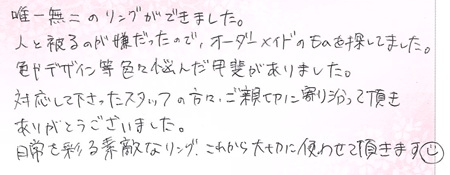 唯一無二のリングができました。
人と被るのが嫌だったので、オーダーメイドのものを探してました。
色やデザイン等色々悩んだ甲斐がありました。
対応して下さったスタッフの方々、ご親切に寄り沿って頂き
ありがとうございました。
日常を彩る素敵なリング、これから大切に使わせて頂きます